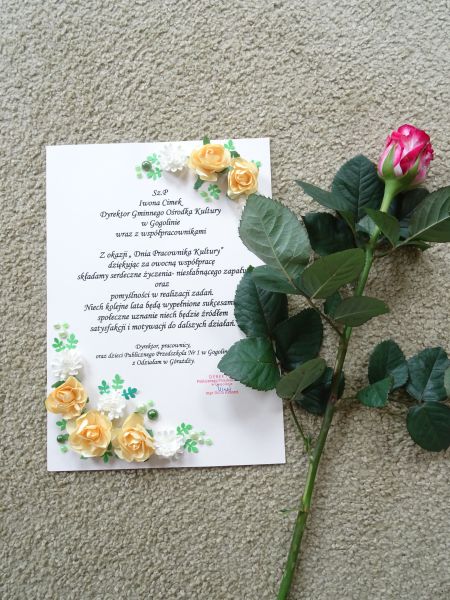 Sz.P
Iwona Cimek
Dyrektor Gminnego Ośrodka Kultury
w Gogolinie
wraz z współpracownikami
Z okazji „ Dnia Pracownika Kultury"
dziękując za owocną współpracę
składamy serdeczne życzenia- niesłabnącego zapału
oraz
pomyślności w realizacji zadań.
Niech kolejne lata będą wypełnione sukcesami
społeczne uznanie niech będzie źródłem
satysfakcji i motywacji do dalszych działań.
Dyrektor, pracownicy,
oraz dzieci Publicznego Przedszkola Nr 1 w Gogolinie
z Odziałem w Górażdży
DYREKTOR
Publicznego Przedszkola